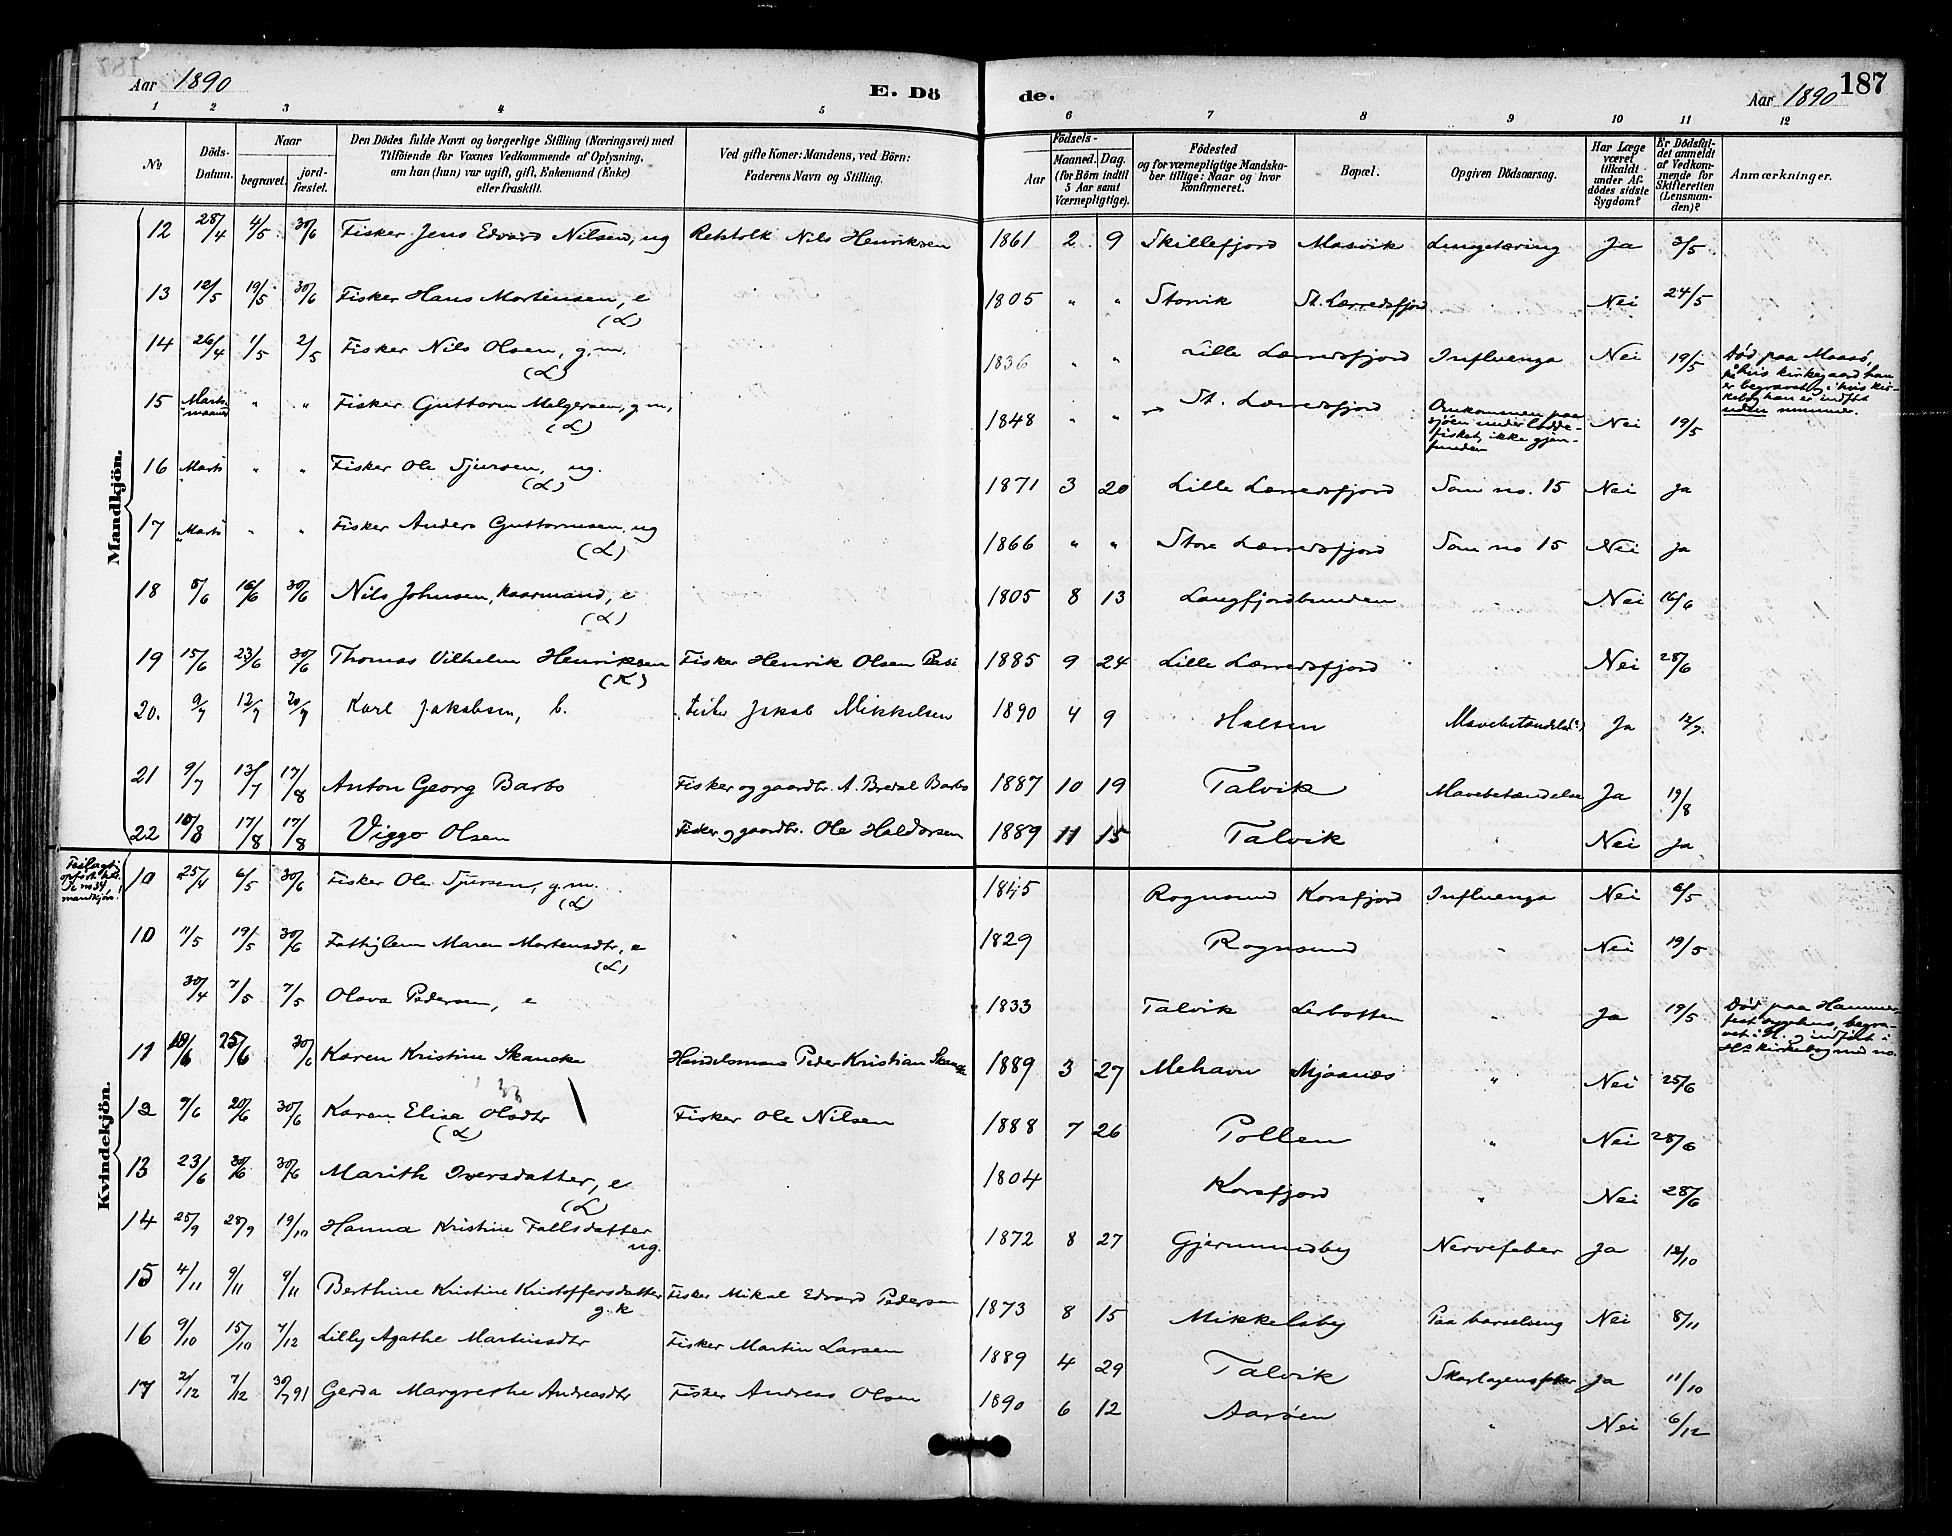 187
Aar 1890
E. Dö
de.
Aar 1890
1 2 3 4 5 6 7 8 9 10 11 12
No
Döds-Datum.
Naar
begravet.
jord-fæstet.
Den Dödes fulde Navn og borgerlige Stilling (Næringsvei) med
Tilföiende for Voxnes Vedkommende af Oplysning,
om han (hun) var ugift, gift, Enkemand (Enke)
eller fraskilt.
Ved gifte Koner: Mandens, ved Börn:
Faderens Navn og Stilling.
Födsels-
Aar
Maaned. Dag.
(for Börn indtil
5 Aar samt
Værnepligtige).
Födested
og for værnepligtige Mandska-
ber tillige: Naar og hvor
konfirmeret.
Bopæl.
Opgiven Dödsaarsag.
Har Læge
været
tilkaldt
under Af-
dödes sidste
Sygdom?
Er Dödsfal-
det anmeldt
af Vedkom-
mende for
Skifteretten
(Lensman-
den)?
Anmærkninger.
Mandkjön.
12 28/4 4/5 30/6 Fisker Jens Edvard Nilsen, ug Nils Henriksen 1861 2 9 Skillefjord Masvik Lungetæring Ja 3/5
13 12/5 19/5 30/6 Fisker Hans Mortensen, e (L) 1805 " " Storvik St. Lerredsfjord " Nei 24/5
14 26/4 1/5 2/5 Fisker Nils Olsen, g.m. (L) 1836 " " Lille Lerredsfjord Influenza Nei 19/5 Död paa Maasö, på hvis kirkegaard han er begravet og i hvis kirkebog han er indfört uden nummer.
15 Marts maaned " " Fisker Guttorm Melgersen, g.m. (L) 1848 " " St. Lerredsfjord Omkommen paa sjöen under loddefisket, ikke gjenfunden Nei 19/5
16 Marts " " Fisker Ole Sjursen, ug. (L) 1871 3 20 Lille Lerredsfjord Som no. 15 Nei ja
17 Marts " " Fisker Anders Guttormsen ug (L) 1866 " " Store Lerredsfjord Som no 15 Nei ja
18 5/6 16/6 30/6 Nils Johnsen, kaarmand, e (L) 1805 8 13 Langfjordbunden " Nei 16/6
19 15/6 23/6 30/6 Thomas Vilhelm Henriksen (K) Fisker Henrik Olsen 1885 9 24 Lille Lerredsfjord " Nei 28/6
20. 9/7 12/7 20/7 Karl Jakobsen, b. Fisker Jakob Mikkelsen 1890 4 9 Halsen Mavebetændelse Ja 12/7
21 9/7 13/7 17/8 Anton Georg Barbo Fisker og gaardbr. A. Bredal Barbo 1887 10 19 Talvik Mavebetændelse Ja 19/8
22 10/8 17/8 17/8 Viggo Olsen Fisker og gaardbr. Ole Haldorsen 1889 11 15 Talvik " Nei Ja
Kvindekjön.
Feilagti opfört her. Se no 34, mandkjön!
10 25/4 6/5 30/6 Fisker Ole Sjursen, g.m. (L) 1845 Rognsund Korsfjord Influenza Nei 6/5
10 11/5 19/5 30/6 Fattiglem Maren Mortensdtr, e (L) 1829 Rognsund " Nei 19/5
30/4 7/5 7/5 Olava Pedersen, e 1833 Talvik Lerbotten " Ja 19/5 Död paa Hammerfest sygehus, begravet i H. og indfört i Hs kirkebog med no.
11 19/6 25/6 30/6 Karen Kristine Skancke Handelsmand Peder Kristian Skancke 1889 3 27 Mehavn Mjaanes " Nei 25/6
12 9/6 20/6 30/6 Karen Elisa Olsdtr (L) Fisker Ole Nilsen 1888 7 26 Pollen " Nei 28/6
13 23/6 30/6 30/6 Marith Iversdatter, e (L) 1804 Korsfjord " Nei 28/6
14 25/9 28/9 19/10 Hanna Kristine Fallsdatter ug. 1872 8 27 Gjermundby Nervefeber Ja 12/10
15 4/11 9/11 9/11 Berthine Kristine Kristoffersdatter g.k Fisker Mikal Edvard Pedersen 1873 8 15 Mikkelsby Paa barselseng Nei 8/11
16 9/10 15/10 7/12 Lilly Agathe Martinsdtr Fisker Martin Larsen 1889 4 29 Talvik Skarlagensfeber Ja 11/10
17 2/12 7/12 30/7 91 Gerda Margrethe Andreasdtr Fisker Andreas Olsen 1890 6 12 Aaröen " Nei 6/12